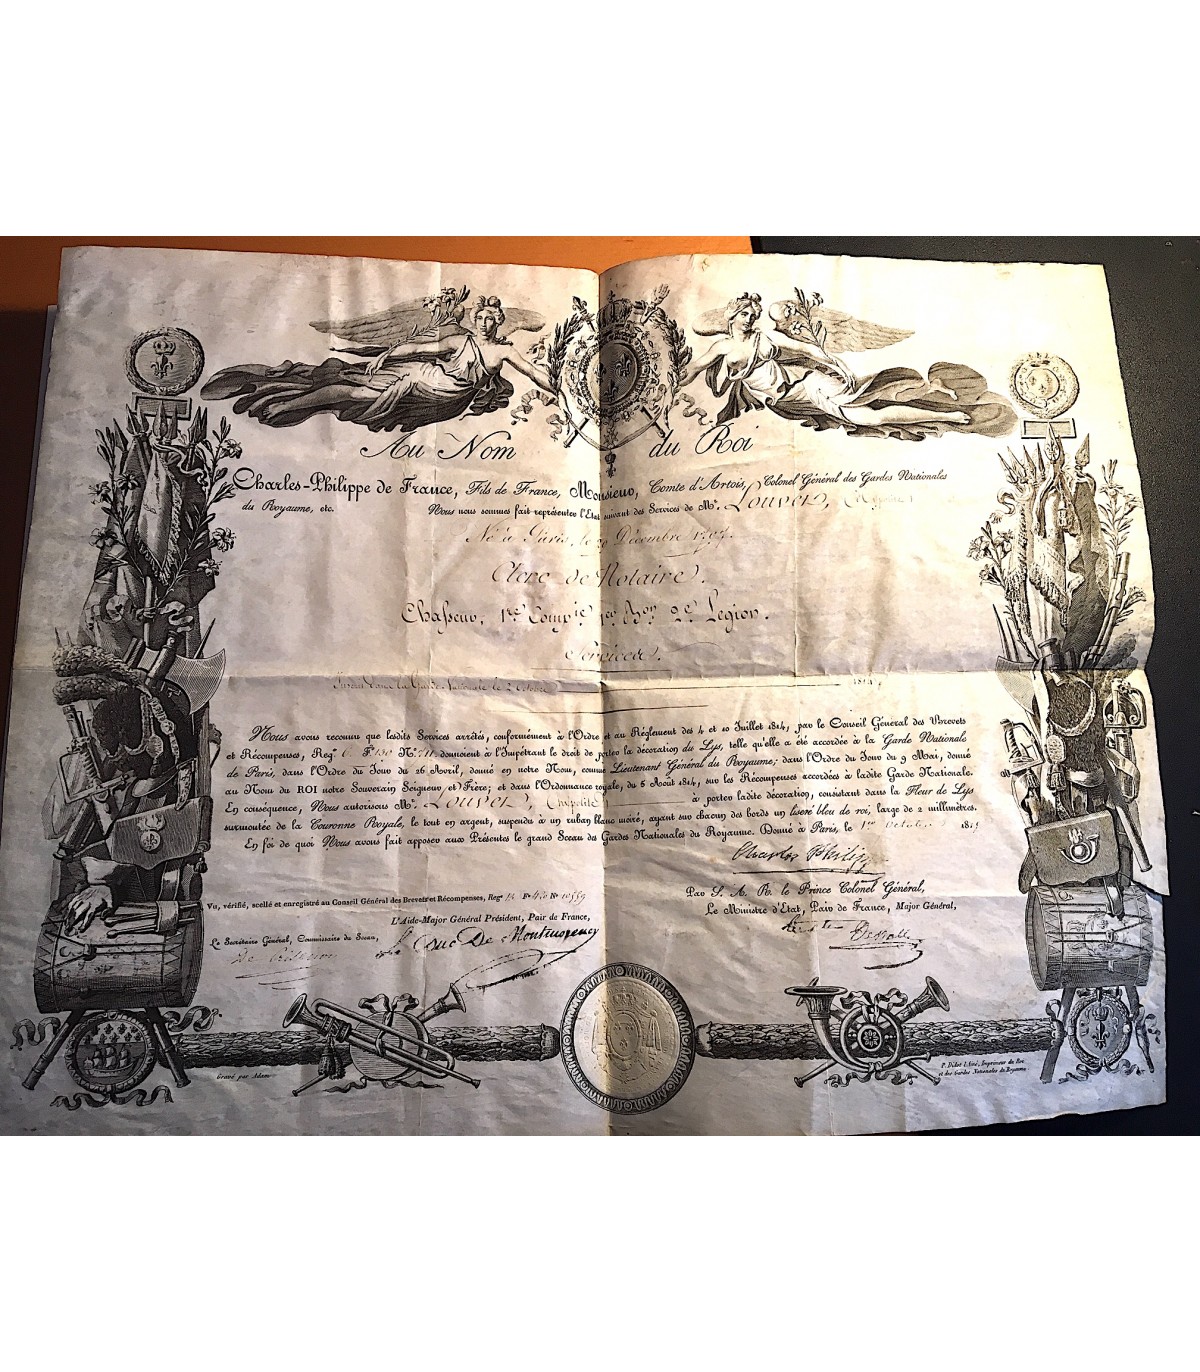 Au Nom du Roi
Charles-Philippe de France, Fils de France, Monsieur, Comte d'Artois, Colonel Général des Gardes Nationales
du Royaume, etc. Nous nous sommes fait représenter l'Etat suivant des Services de Mr. Louver,
Né à Paris, le Décembre
Clerc de Notaire.
Chasseur, 1re Compie 1er Bon 2e Légion.
Services.
dans la Garde Nationale le 2 Octobre
Nous avons reconnu que lesdits Services arrêtés, conformément à l'Ordre et au Réglement des 4 et 10 Juillet 1814, par le Conseil Général des Brevets
et Récompenses, Reg. 6 Fo. No. donnoient à l'Impétrant le droit de porter la décoration du Lys, telle qu'elle a été accordée à la Garde Nationale
de Paris, dans l'Ordre du Jour du 26 Avril, donné en notre Nom, comme Lieutenant Général du Royaume; dans l'Ordre du Jour du 9 Mai, donné
au Nom du ROI notre Souverain Seigneur et Frère; et dans l'Ordonnance royale, du 5 Août 1814, sur les Récompenses accordées à ladite Garde Nationale.
En conséquence, Nous autorisons Mr. Louver, à porter ladite décoration, consistant dans la Fleur de Lys
surmontée de la Couronne Royale, le tout en argent, suspendu à un ruban blanc moiré, ayant sur chacun des bords un liseré bleu de roi, large de 2 millimètres.
En foi de quoi Nous avons fait apposer aux Présentes le grand Sceau des Gardes Nationales du Royaume. Donné à Paris, le 1er Octobre 1815
Charles Philippe
Par S. A. R. le Prince Colonel Général,
Le Ministre d'Etat, Pair de France, Major Général,
Vu, vérifié, scellé et enregistré au Conseil Général des Brevets et Récompenses, Reg. Fo. No 10559
L'Aide-Major Général Président, Pair de France,
Le Secrétaire Général, Commissaire du Sceau,
Duc De Montmorency
Gravé par Adam
P. Didot l'Aîné, Imprimeur du Roi
et des Gardes Nationales du Royaume